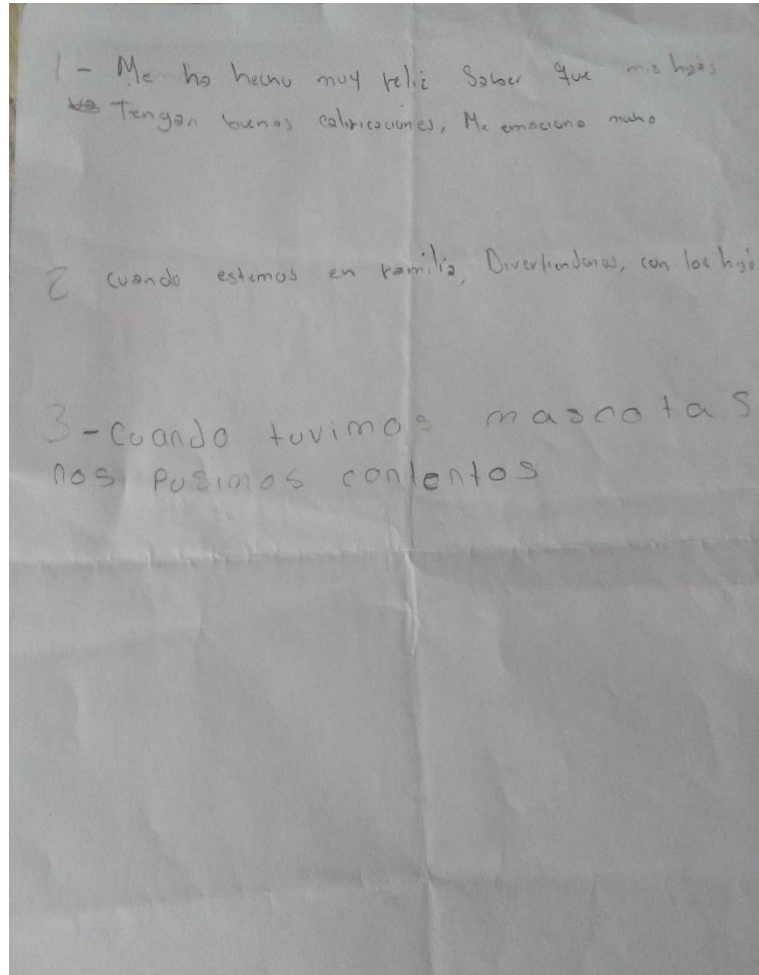 1- Me ha hecho muy feliz Saber que mis hijos
Tengan buenas calificaciones, Me emociona mucho
2 cuando estamos en familia, Divertiendonos, con los hijo
3-Cuando tuvimos mascotas
nos pusimos contentos